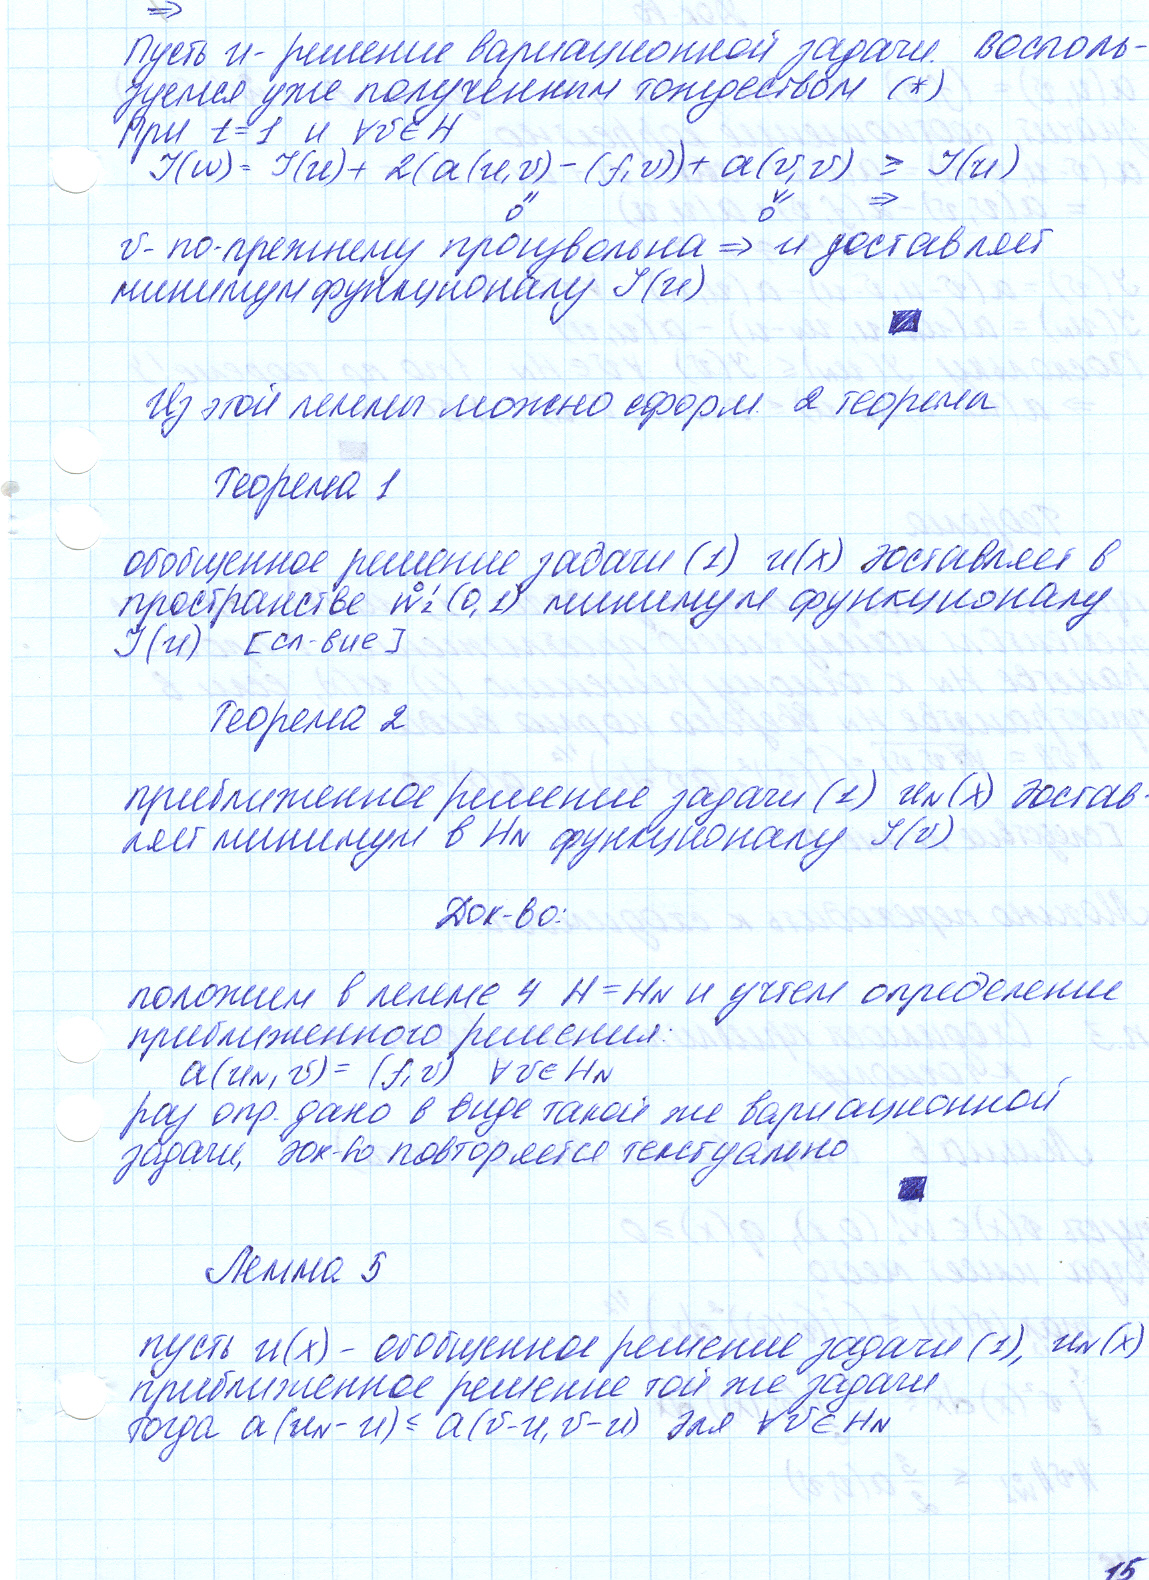 ⇒
Пусть u - решение вариационной задачи. Восполь-
зуемся уже полученным тождеством (*)
При t=1 и ∀v∈H
J(w) = J(u) + 2(a(u,v) - (f,v)) + a(v,v) ≥ J(u)
" ∨ ⇒
0 0
v - по-прежнему произвольна ⇒ u доставляет
минимум функционалу J(u)
Из этой леммы можно сформ. 2 теоремы
Теорема 1
обобщенное решение задачи (1) u(x) доставляет в
пространстве W̊₂¹(0,1) минимум функционалу
J(u) [сл-вие]
Теорема 2
приближенное решение задачи (1) u_N(x) достав-
ляет минимум в H_N функционалу J(v)
Док-во:
положим в лемме 4 H = H_N и учтем определение
приближенного решения:
a(u_N, v) = (f,v) ∀v∈H_N
раз опр. дано в виде такой же вариационной
задачи, док-во повторяется текстуально
Лемма 5
пусть u(x) - обобщенное решение задачи (1), u_N(x)
приближенное решение той же задачи
тогда a(u_N - u) ≤ a(v-u, v-u) для ∀v∈H_N
15